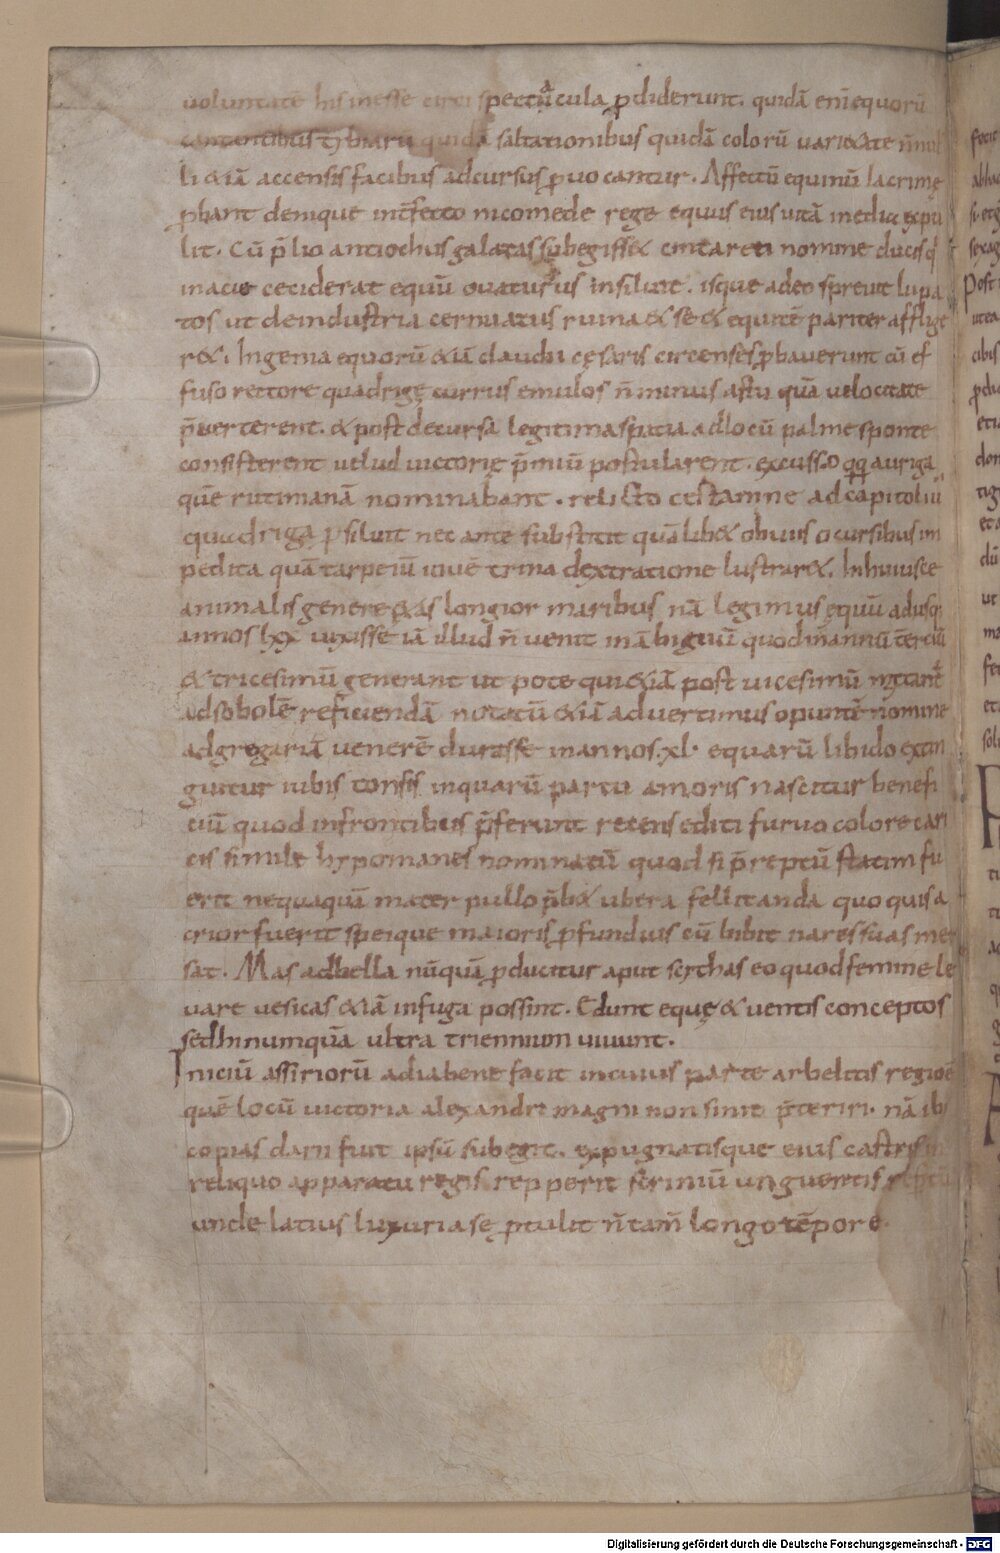 uoluntatē his inesse circi spectacula ꝓdiderunt. quidā enī equorū
cantantibus tybiarū quidā saltationibus quidā colorū uari&ate ñnul
li &iā accensis facibus adcursus ꝓuocantur. Affectū equinū lacrimę
ꝓbant denique intfecto nicomede rege equus eius uitā inedia expu
lit. Cū p̄lio antiochus galatas subegiss& cintareti nomine ducis q̄
inacie ceciderat equū ouaturus insiluit. isque adeo spreuit lupa
tos ut deindustria cernuatus ruina & se & equitē pariter afflige
r&. Ingenia equorū &iā claudii cęsaris circenses ꝓbauerunt cū ef
fuso rectore quadrigę currus emulos ñ minus astu quā uelocitate
p̄uerterent. & post decursa legitima spatia adlocū palme sponte
consisterent uelud uictorię p̄miū postularent. excusso qq; auriga
quē rutimanā nominabant. relicto certamine ad capitoliū
quadriga ꝓsiluit nec ante substitit quā lib& obuiis ccursibus im
pedita quā tarpeiū iouē trina dextratione lustrar&. In huiusce
animalis genere &as longior maribus nā legimus equū adusq;
annos lxx uixisse iā illud ñ uenit inābiguū quod inannū terciū
& tricesimū generant ut pote qui &iā post uicesimū mittant
adsobolē reficiendā notatū &iā aduertimus opuntē nomine
adgregariā uenerē durasse inannos .xl. equarū libido extin
guitur iubis tonsis inquarū partu amoris nascitur benefi
ciū quod infrontibus p̄ferunt recens editi furuo colore cari
cis simile hypomanes nominatū quod si p̄reptū statim fu
erit nequaquā mater pullo p̄b& ubera fellitanda quo quis a
crior fuerit speique maioris ꝓfundius eū bibit nares suas mer
sat. Mas adbella nūquā ꝓducitur aput scythas eo quod femine le
uare uesicas &iā infuga possint. Edunt equę & uentis conceptos
sed hi numquā ultra triennium uiuunt.
Iniciū assiriorū adiabene facit incuius parte arbelitis regio ē
quē locū uictoria alexandri magni non sinit p̄teriri. nā ibi
copias darii fuit ipsū subegit. expugnatisque eius castris in
reliquo apparatu regis repperit scriniū unguentis refertū
unde latius luxuria se ꝓtulit ñ tam̄ longo tēpore
Digitalisierung gefördert durch die Deutsche Forschungsgemeinschaft - DFG